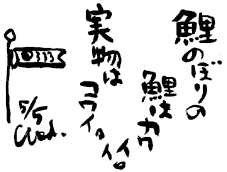 鯉のぼりの
鯉はカワイイ。
実物は
コワイ。
5/5
Wed.